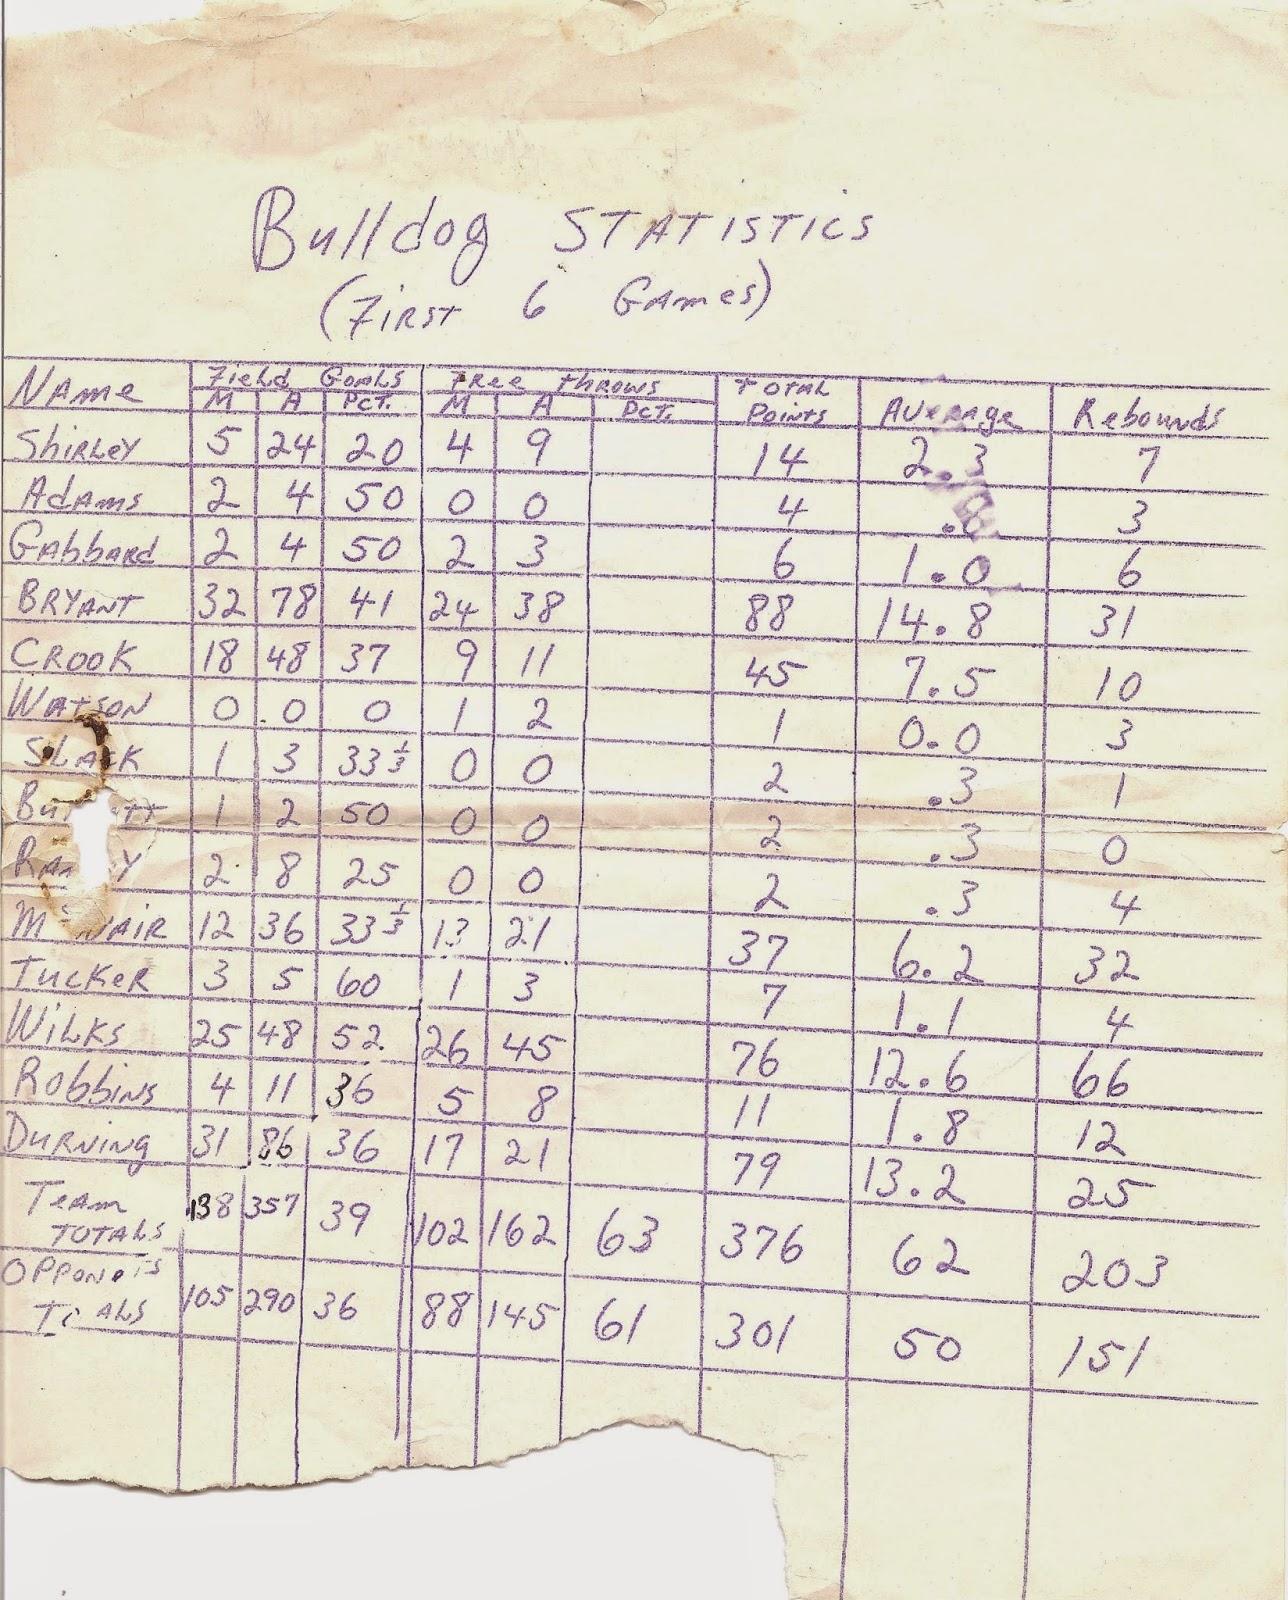 Bulldog STATISTICS
(First 6 Games)
Name Field Goals Free Throws Total Points Average Rebounds
M A Pct. M A Pct.
Shirley 5 24 20 4 9 14 2.3 7
Adams 2 4 50 0 0 4 3
Gabbard 2 4 50 2 3 6 1.0 6
Bryant 32 78 41 24 38 88 14.8 31
Crook 18 48 37 9 11 45 7.5 10
Watson 0 0 0 1 2 1 0.0 3
Slack 1 3 33 1/3 0 0 2 .3 1
1 2 50 0 0 2 .3 0
2 8 25 0 0 2 .3 4
12 36 33 1/3 13 21 37 6.2 32
Tucker 3 5 60 1 3 7 1.1 4
Wilks 25 48 52 26 45 76 12.6 66
Robbins 4 11 36 5 8 11 1.8 12
Durning 31 86 36 17 21 79 13.2 25
Team Totals 138 357 39 102 162 63 376 62 203
105 290 36 88 145 61 301 50 151